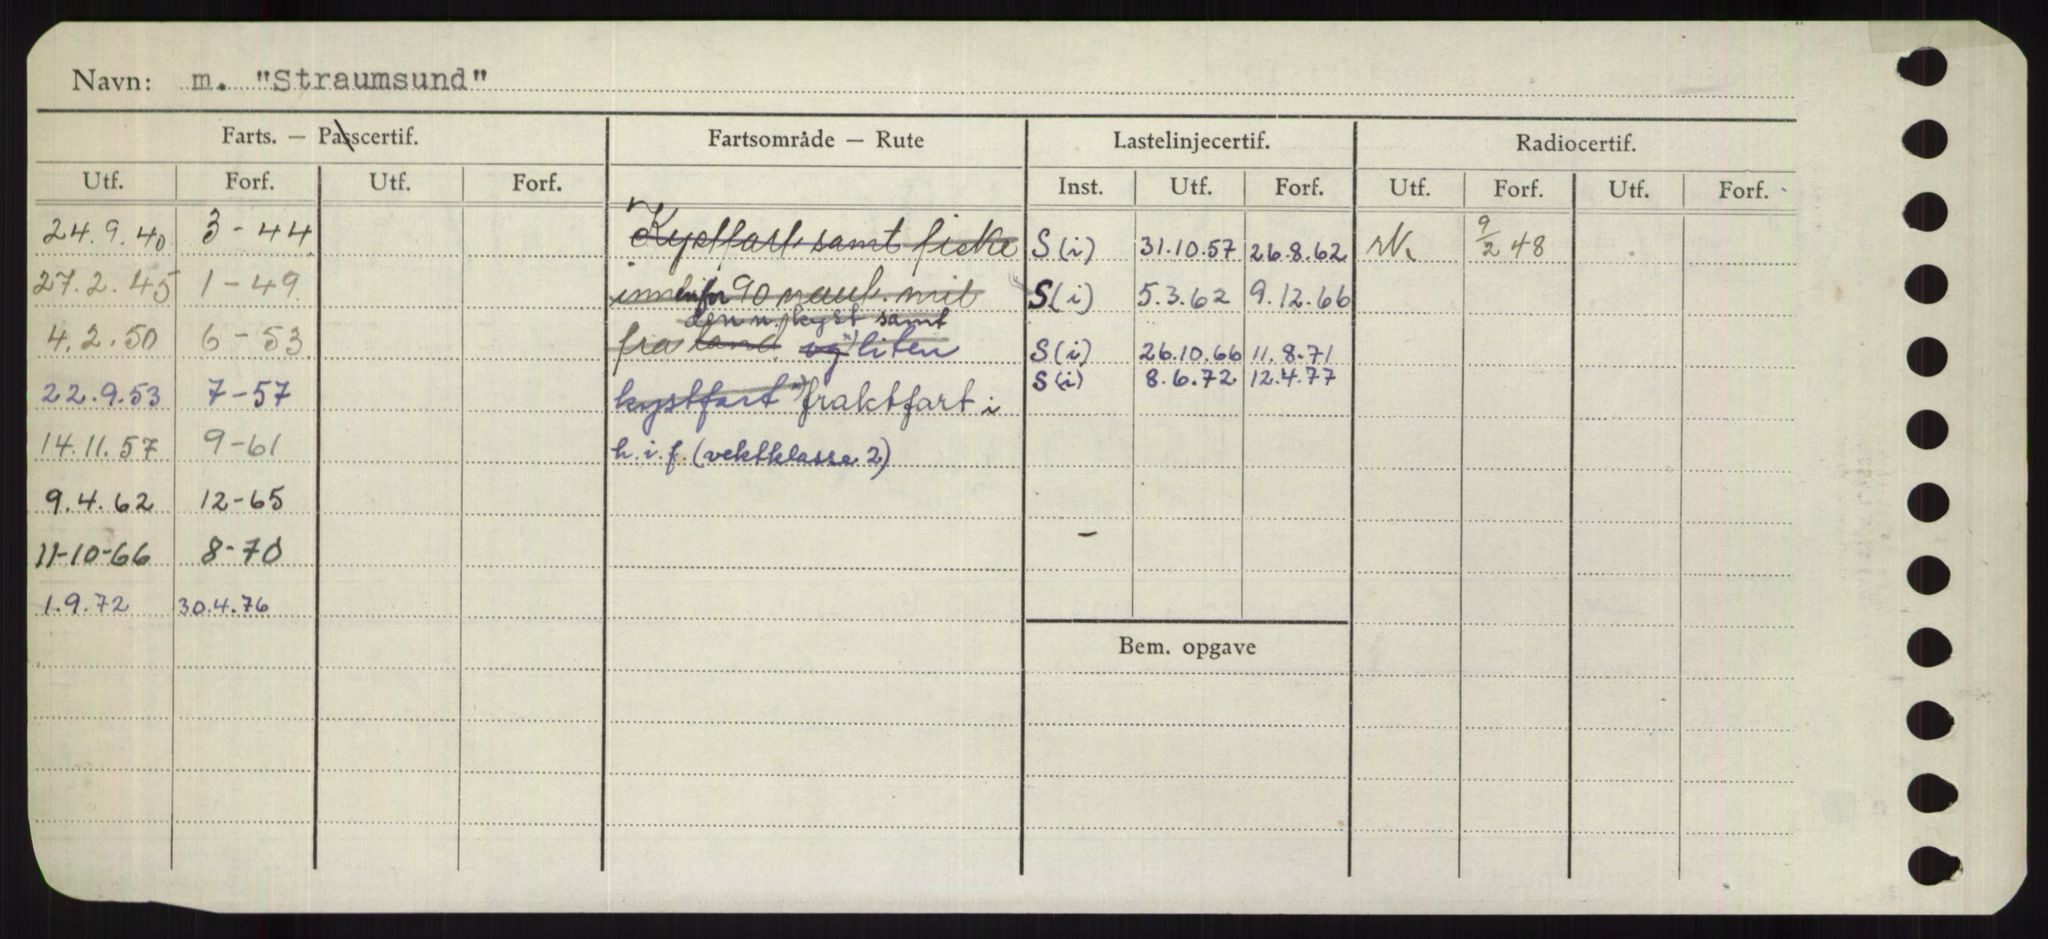 Navn: m. "Straumsund"
Farts. — Passcertif. Fartsområde — Rute Lastelinjecertif. Radiocertif.
Utf. Forf. Utf. Forf. Inst. Utf. Forf. Utf. Forf. Utf. Forf.
24.9.40 3-44 Kystfart samt fiske S(i) 31.10.57 26.8.62 9/2 48
27.2.45 1-49 innenfor 90 naut. mil S(i) 5.3.62 9.12.66
den n. kyst samt
4.2.50 6-53 fra land og liten S(i) 26.10.66 11.8.71
S(i) 8.6.72 12.4.77
22.9.53 7-57 kystfart fraktfart i
14.11.57 9-61 h.i.f. (vektklasse 2)
9.4.62 12-65
11-10-66 8-70
1.9.72 30.4.76
Bem. opgave